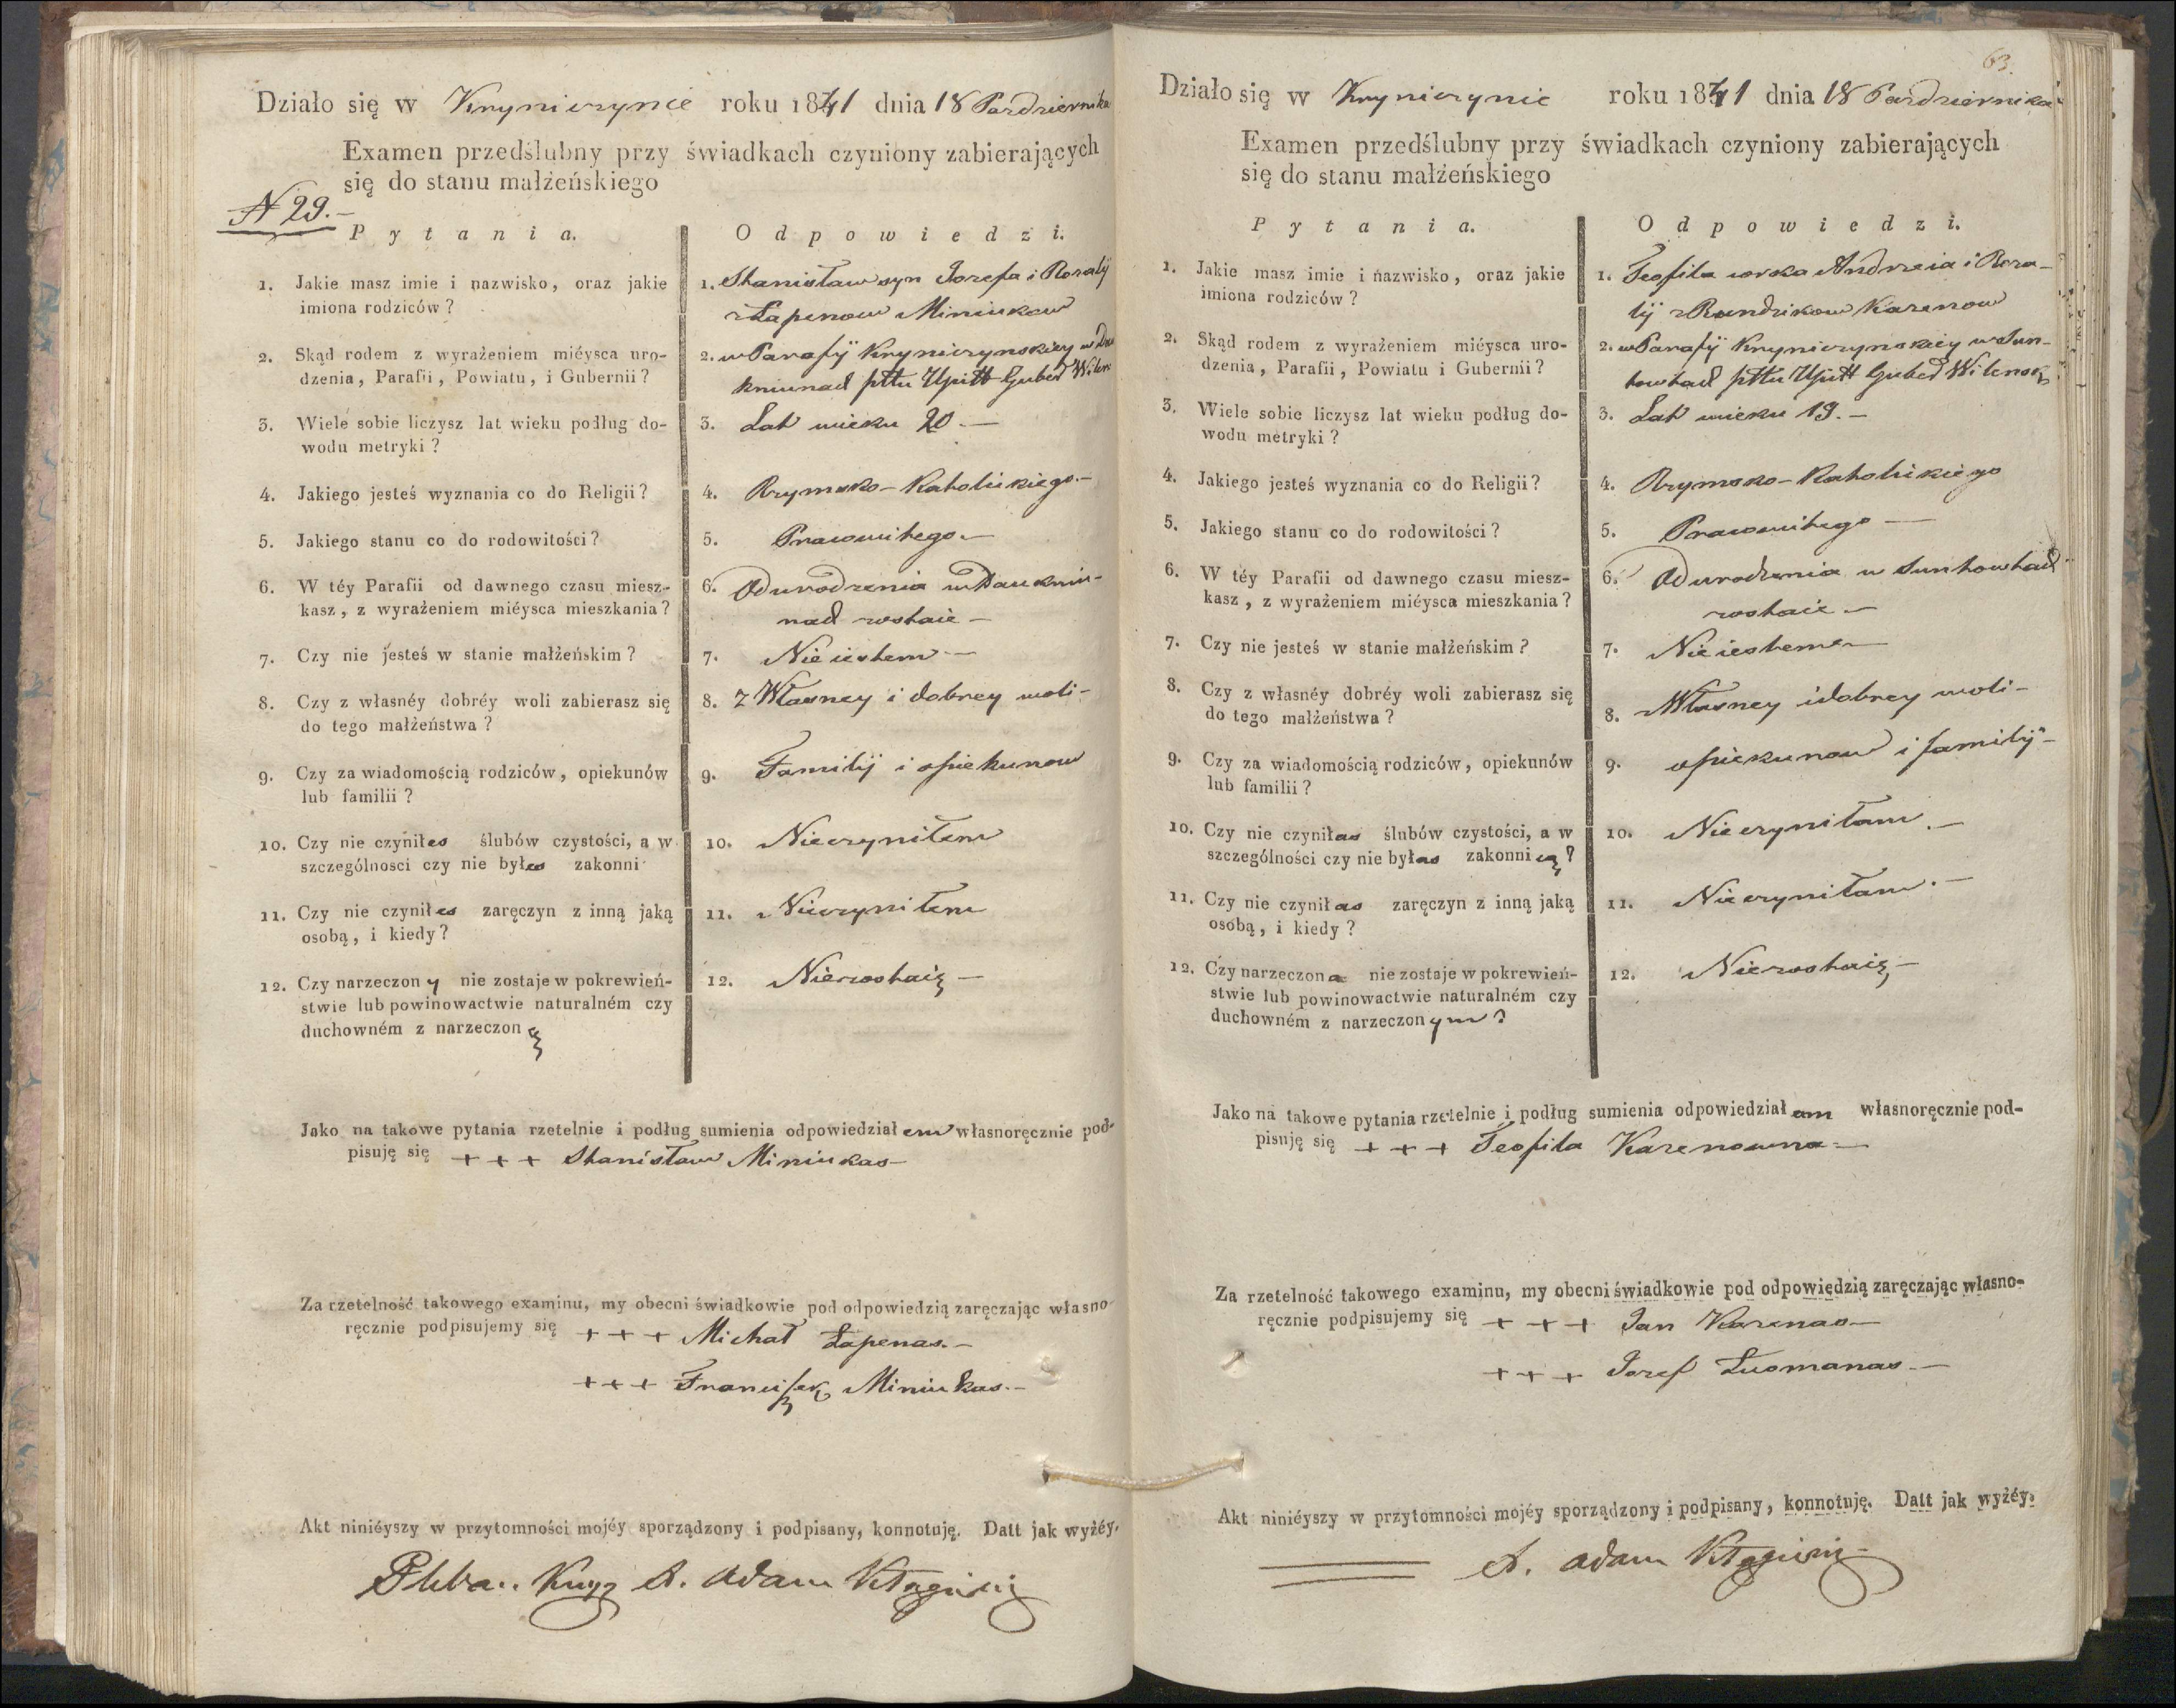 Działo się w Kryniczynie roku 1841 dnia 18 Pazdziernika
Examen przedślubny przy świadkach czyniony zabierających
się do stanu małżeńskiego
N 29.
Pytania.
Odpowiedzi.
1. Jakie masz imie i nazwisko, oraz jakie
imiona rodziców?
1. Stanisław syn Jozefa i Rozalij
z Łapenow Miniukow
2. Skąd rodem z wyrażeniem miéysca uro-
dzenia, Parafii, Powiatu, i Gubernii?
2. w Parafij Kryniczynskiey w
kniunach pttu Upitt Guber Wilen
3. Wiele sobie liczysz lat wieku podług do-
wodu metryki?
3. Lat wieku 20.—
4. Jakiego jesteś wyznania co do Religii?
4. Rzymsko-Katolickiego.—
5. Jakiego stanu co do rodowitości?
5. Pracowitego.—
6. W téy Parafii od dawnego czasu miesz-
kasz, z wyrażeniem miéysca mieszkania?
6. Od urodzenia w Daukniu-
nach zostaie—
7. Czy nie jesteś w stanie małżeńskim?
7. Nie iestem—
8. Czy z własnéy dobréy woli zabierasz się
do tego małżeństwa?
8. z Własney i dobrey woli-
9. Czy za wiadomością rodziców, opiekunów
lub familii?
9. Familij i opiekunow
10. Czy nie czyniłes ślubów czystości, a w
szczególnosci czy nie byłes zakonni
10. Nieczyniłem
11. Czy nie czyniłes zaręczyn z inną jaką
osobą, i kiedy?
11. Nieczyniłem
12. Czy narzeczony nie zostaje w pokrewień-
stwie lub powinowactwie naturalném czy
duchowném z narzeczoną
12. Niezostaię—
Jako na takowe pytania rzetelnie i podług sumienia odpowiedziałem własnoręcznie pod-
pisuję się +++ Stanisław Miniukas—
Za rzetelność takowego examinu, my obecni świadkowie pod odpowiedzią zaręczając własno-
ręcznie podpisujemy się +++ Michał Łapenas.—
+++ Franciszek Miniukas.—
Akt niniéyszy w przytomności mojéy sporządzony i podpisany, konnotuję. Datt jak wyżéy.
Adam
63.
Działo się w Kryniczynie roku 1841 dnia 18 Pazdziernika
Examen przedślubny przy świadkach czyniony zabierających
się do stanu małżeńskiego
Pytania.
Odpowiedzi.
1. Jakie masz imie i nazwisko, oraz jakie
imiona rodziców?
1. Teofila corka Andrzeia i Roza-
lij z Rundzikow Karenow
2. Skąd rodem z wyrażeniem miéysca uro-
dzenia, Parafii, Powiatu i Gubernii?
2. w Parafij Kryniczynskiey w Sun-
towtach pttu Upitt Guber Wilensk
3. Wiele sobie liczysz lat wieku podług do-
wodu metryki?
3. Lat wieku 19.—
4. Jakiego jesteś wyznania co do Religii?
4. Rzymsko-Katolickiego
5. Jakiego stanu co do rodowitości?
5. Pracowitego—
6. W téy Parafii od dawnego czasu miesz-
kasz, z wyrażeniem miéysca mieszkania?
6. Od urodzenia w Suntowtach
zostaie—
7. Czy nie jesteś w stanie małżeńskim?
7. Nie iestem—
8. Czy z własnéy dobréy woli zabierasz się
do tego małżeństwa?
8. z Własney i dobrey woli-
9. Czy za wiadomością rodziców, opiekunów
lub familii?
9. opiekunow i familij-
10. Czy nie czyniłas ślubów czystości, a w
szczególności czy nie byłas zakonnicą?
10. Nieczyniłam.—
11. Czy nie czyniłas zaręczyn z inną jaką
osobą, i kiedy?
11. Nieczyniłam.—
12. Czy narzeczona nie zostaje w pokrewień-
stwie lub powinowactwie naturalném czy
duchowném z narzeczonym?
12. Niezostaię—
Jako na takowe pytania rzetelnie i podług sumienia odpowiedziałam własnoręcznie pod-
pisuję się +++ Teofila Karenowna—
Za rzetelność takowego examinu, my obecni świadkowie pod odpowiedzią zaręczając własno-
ręcznie podpisujemy się +++ Jan Karenas—
+++ Jozef Łusmanas.—
Akt niniéyszy w przytomności mojéy sporządzony i podpisany, konnotuję. Datt jak wyżéy.
Adam